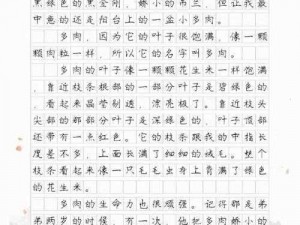 黑绿色的黑金刚，娇小的吊兰，但让我最
中意的还是阳台上的一盆小多肉。
多肉，因为它的叶子很饱满，像一颗
颗肉粒一样，所以它的名字叫多肉。
多肉的叶子像一颗颗花生米一样饱满
，靠近枝条根的一部分叶子是碧绿色的
，看起来晶莹剔透，漂亮极了。靠近枝头
尖部的那部分叶子是深绿色的，叶子顶部
还带有一点红色。它的枝条跟我的中指长
度差不多，上面长满了细细的绒毛。整个枝
条看起来像一只毛毛虫身上背满了绿色
的花生米。
多肉的生命力也很顽强。记得那是弟
弟两岁的时候，有一次，他把多肉娇小的